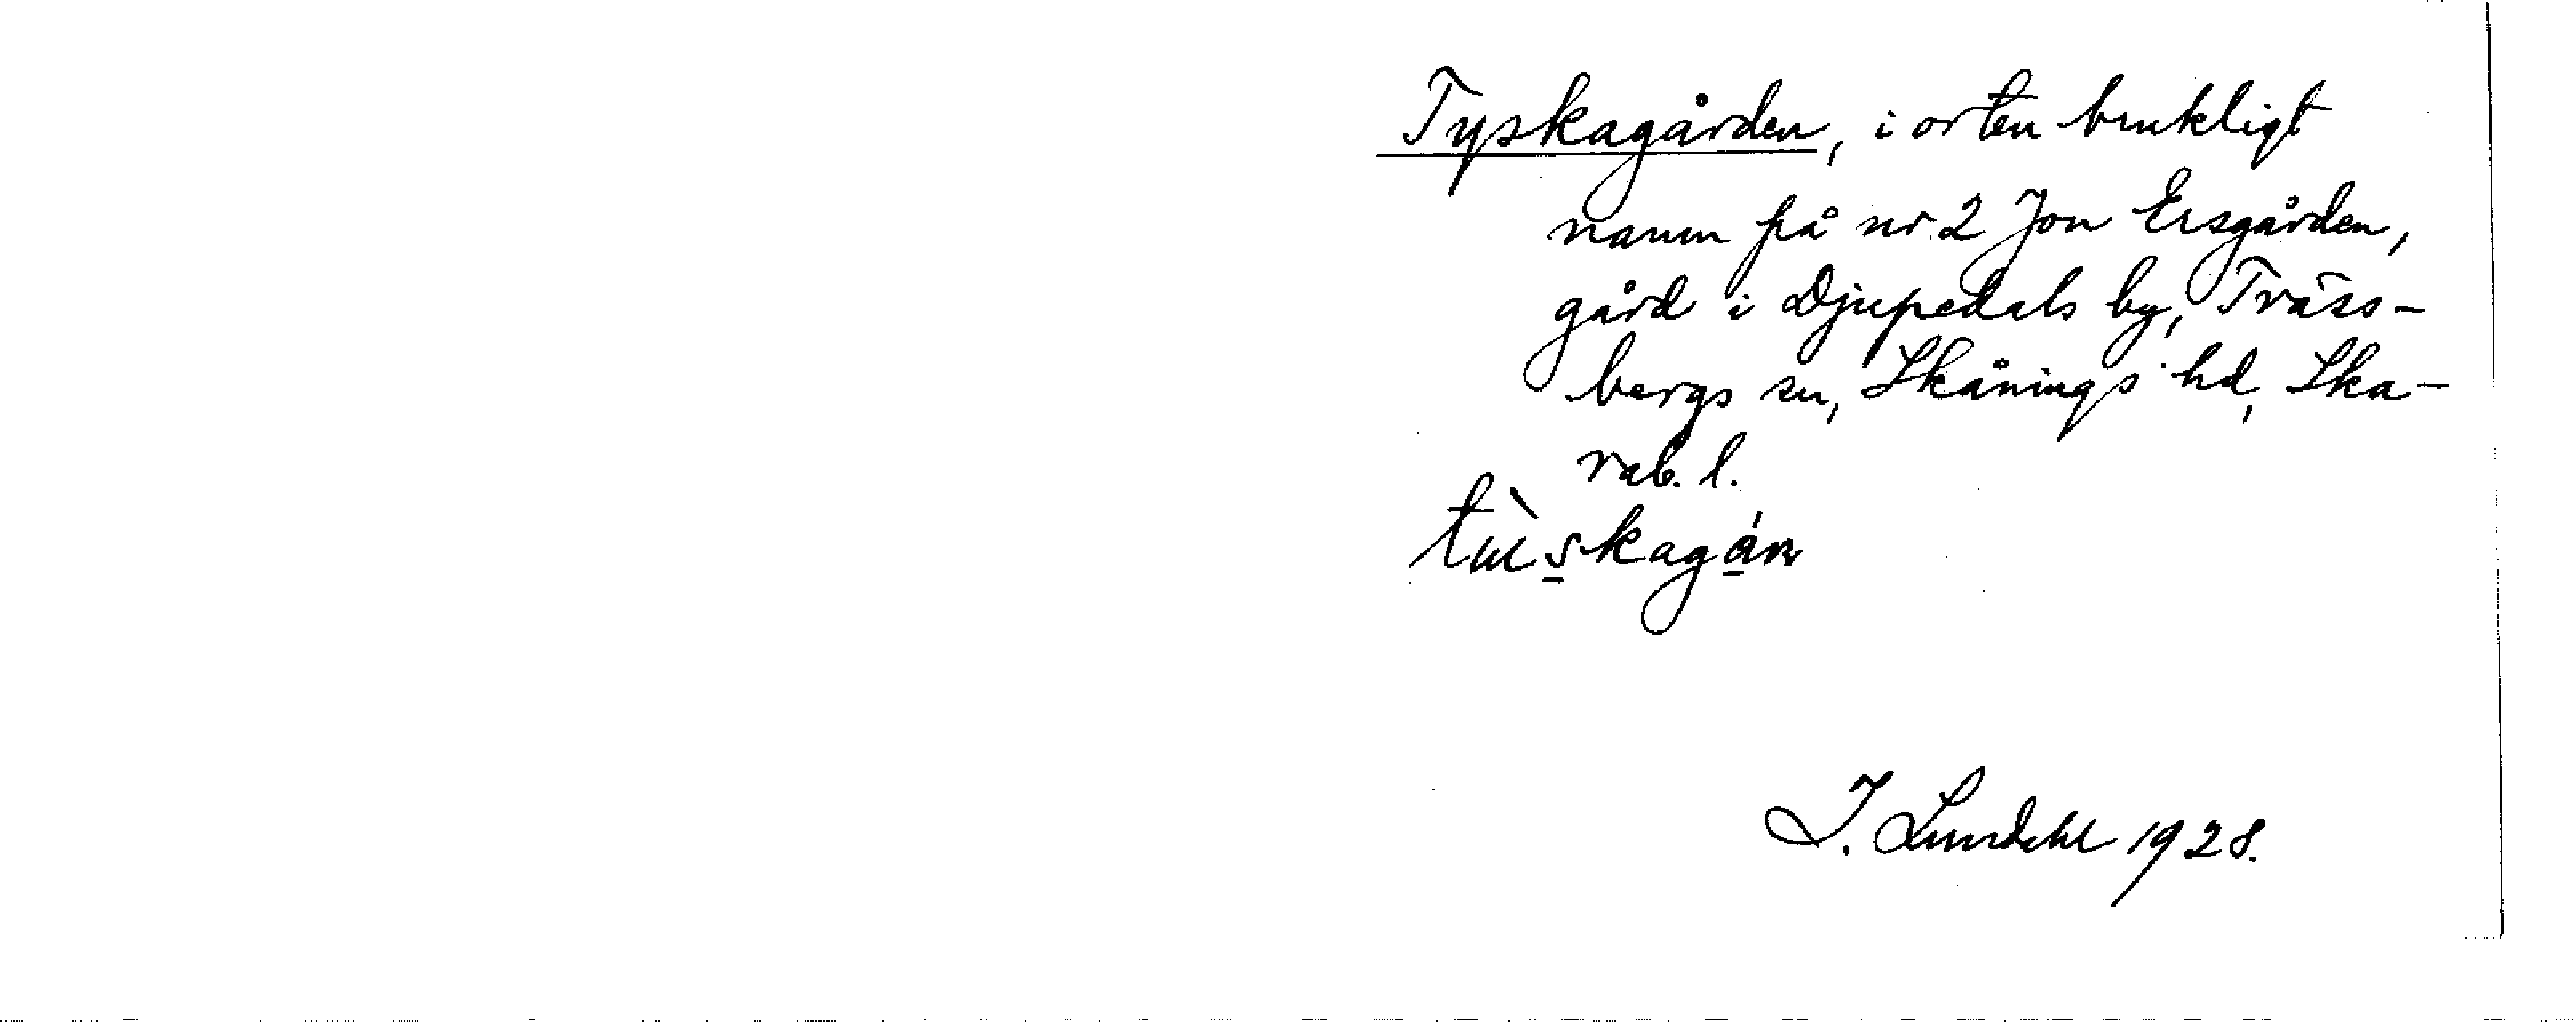 Tyskagården, i orten brukligt
namn på nr 2 Jon Ersgården,
gård i Djupedals by, Träss-
bergs sn, Skånings hd, Ska-
rab. l.
J. Lundahl 1928.